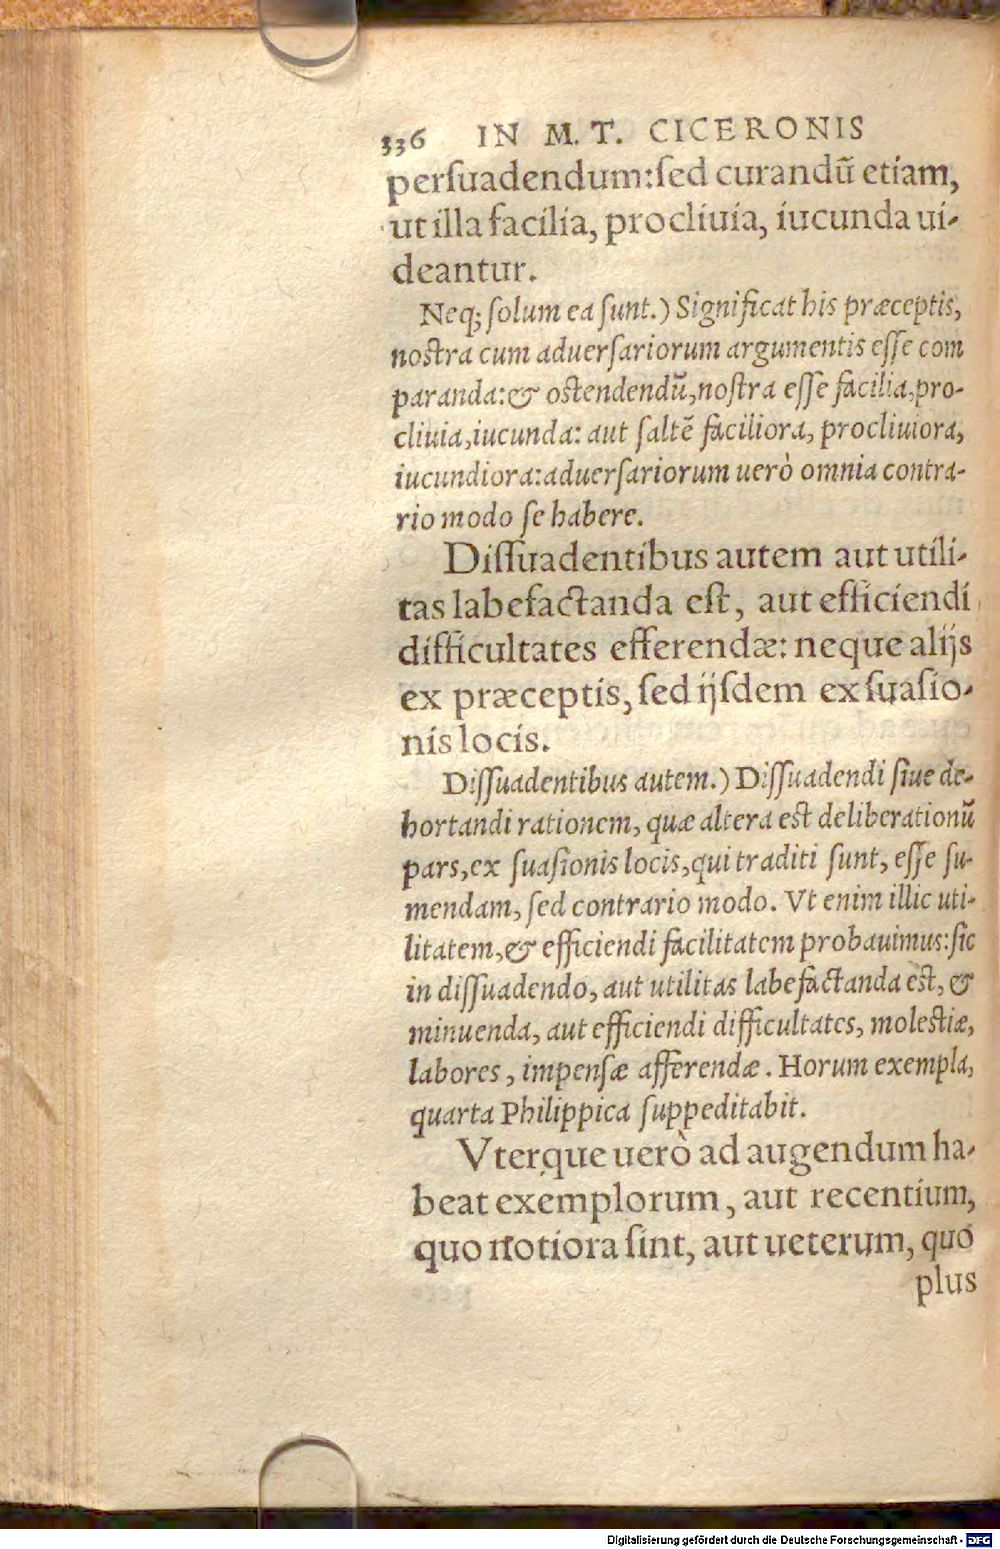 336 IN M. T. CICERONIS
perſuadendum:ſed curandū etiam,
ut illa facilia, procliuia, iucunda ui-
deantur.
Neq; ſolum ea ſunt.) Significat his præceptis,
noſtra cum aduerſariorum argumentis eſſe com
paranda:& oſtendendū,noſtra eſſe facilia,pro-
cliuia,iucunda: aut ſaltē faciliora, procliuiora,
iucundiora:aduerſariorum uerò omnia contra-
rio modo ſe habere.
Diſſuadentibus autem aut utili-
tas labefactanda eſt, aut efficiendi
difficultates efferendæ: neque alijs
ex præceptis, ſed ijſdem ex ſuaſio-
nis locis.
Diſſuadentibus autem.) Diſſuadendi ſiue de-
hortandi rationem, quæ altera eſt deliberationū
pars,ex ſuaſionis locis,qui traditi ſunt, eſſe ſu-
mendam, ſed contrario modo. Vt enim illic uti-
litatem,& efficiendi facilitatem probauimus:ſic
in diſſuadendo, aut utilitas labefactanda eſt, &
minuenda, aut efficiendi difficultates, moleſtiæ,
labores, impenſæ afferendæ. Horum exempla,
quarta Philippica ſuppeditabit.
Vterque uerò ad augendum ha-
beat exemplorum, aut recentium,
quo notiora ſint, aut ueterum, quo
plus
Digitalisierung gefördert durch die Deutsche Forschungsgemeinschaft - DFG